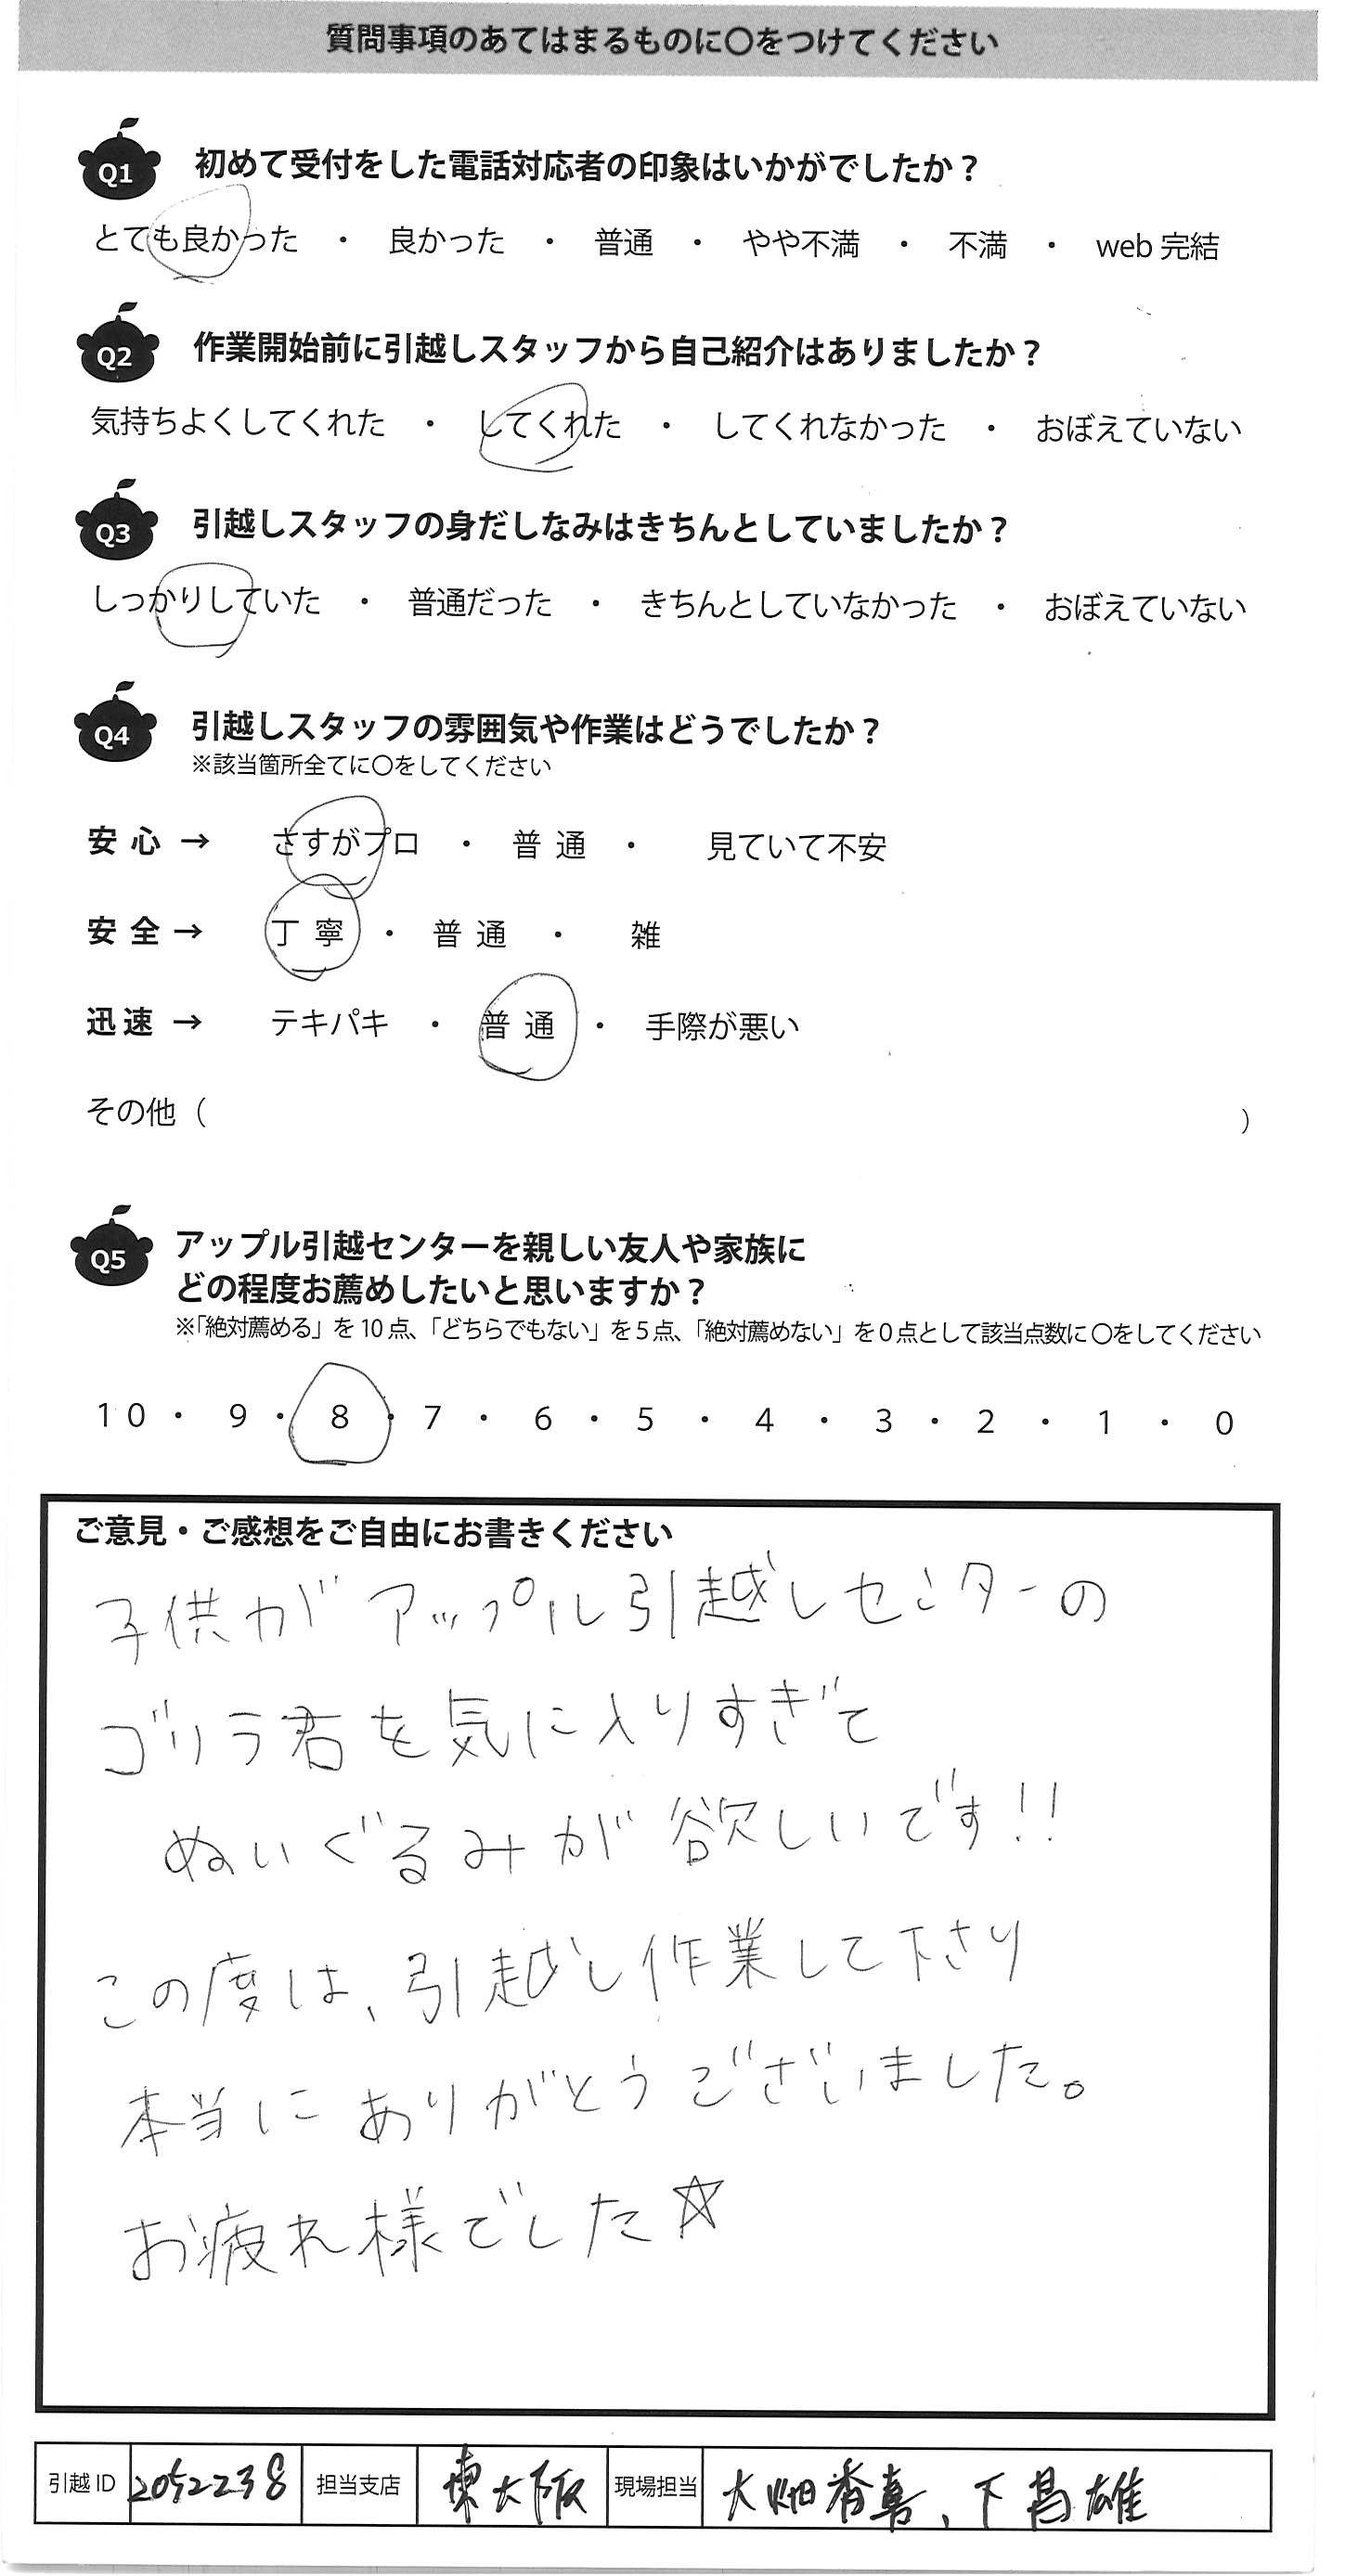 質問事項のあてはまるものに〇をつけてください
Q1 初めて受付をした電話対応者の印象はいかがでしたか？
とても良かった ・ 良かった ・ 普通 ・ やや不満 ・ 不満 ・ web 完結
Q2 作業開始前に引越しスタッフから自己紹介はありましたか？
気持ちよくしてくれた ・ してくれた ・ してくれなかった ・ おぼえていない
Q3 引越しスタッフの身だしなみはきちんとしていましたか？
しっかりしていた ・ 普通だった ・ きちんとしていなかった ・ おぼえていない
Q4 引越しスタッフの雰囲気や作業はどうでしたか？
※該当箇所全てに〇をしてください
安心 → さすがプロ ・ 普通 ・ 見ていて不安
安全 → 丁寧 ・ 普通 ・ 雑
迅速 → テキパキ ・ 普通 ・ 手際が悪い
その他（ ）
Q5 アップル引越センターを親しい友人や家族に
どの程度お薦めしたいと思いますか？
※「絶対薦める」を10点、「どちらでもない」を5点、「絶対薦めない」を0点として該当点数に〇をしてください
10 ・ 9 ・ 8 ・ 7 ・ 6 ・ 5 ・ 4 ・ 3 ・ 2 ・ 1 ・ 0
ご意見・ご感想をご自由にお書きください
子供がアップル引越しセンターの
ゴリラ君を気に入りすぎて
ぬいぐるみが欲しいです!!
この度は、引越し作業して下さり
本当にありがとうございました。
お疲れ様でした☆
引越ID 2052238 担当支店 東大阪 現場担当 大畑 、下 昌雄